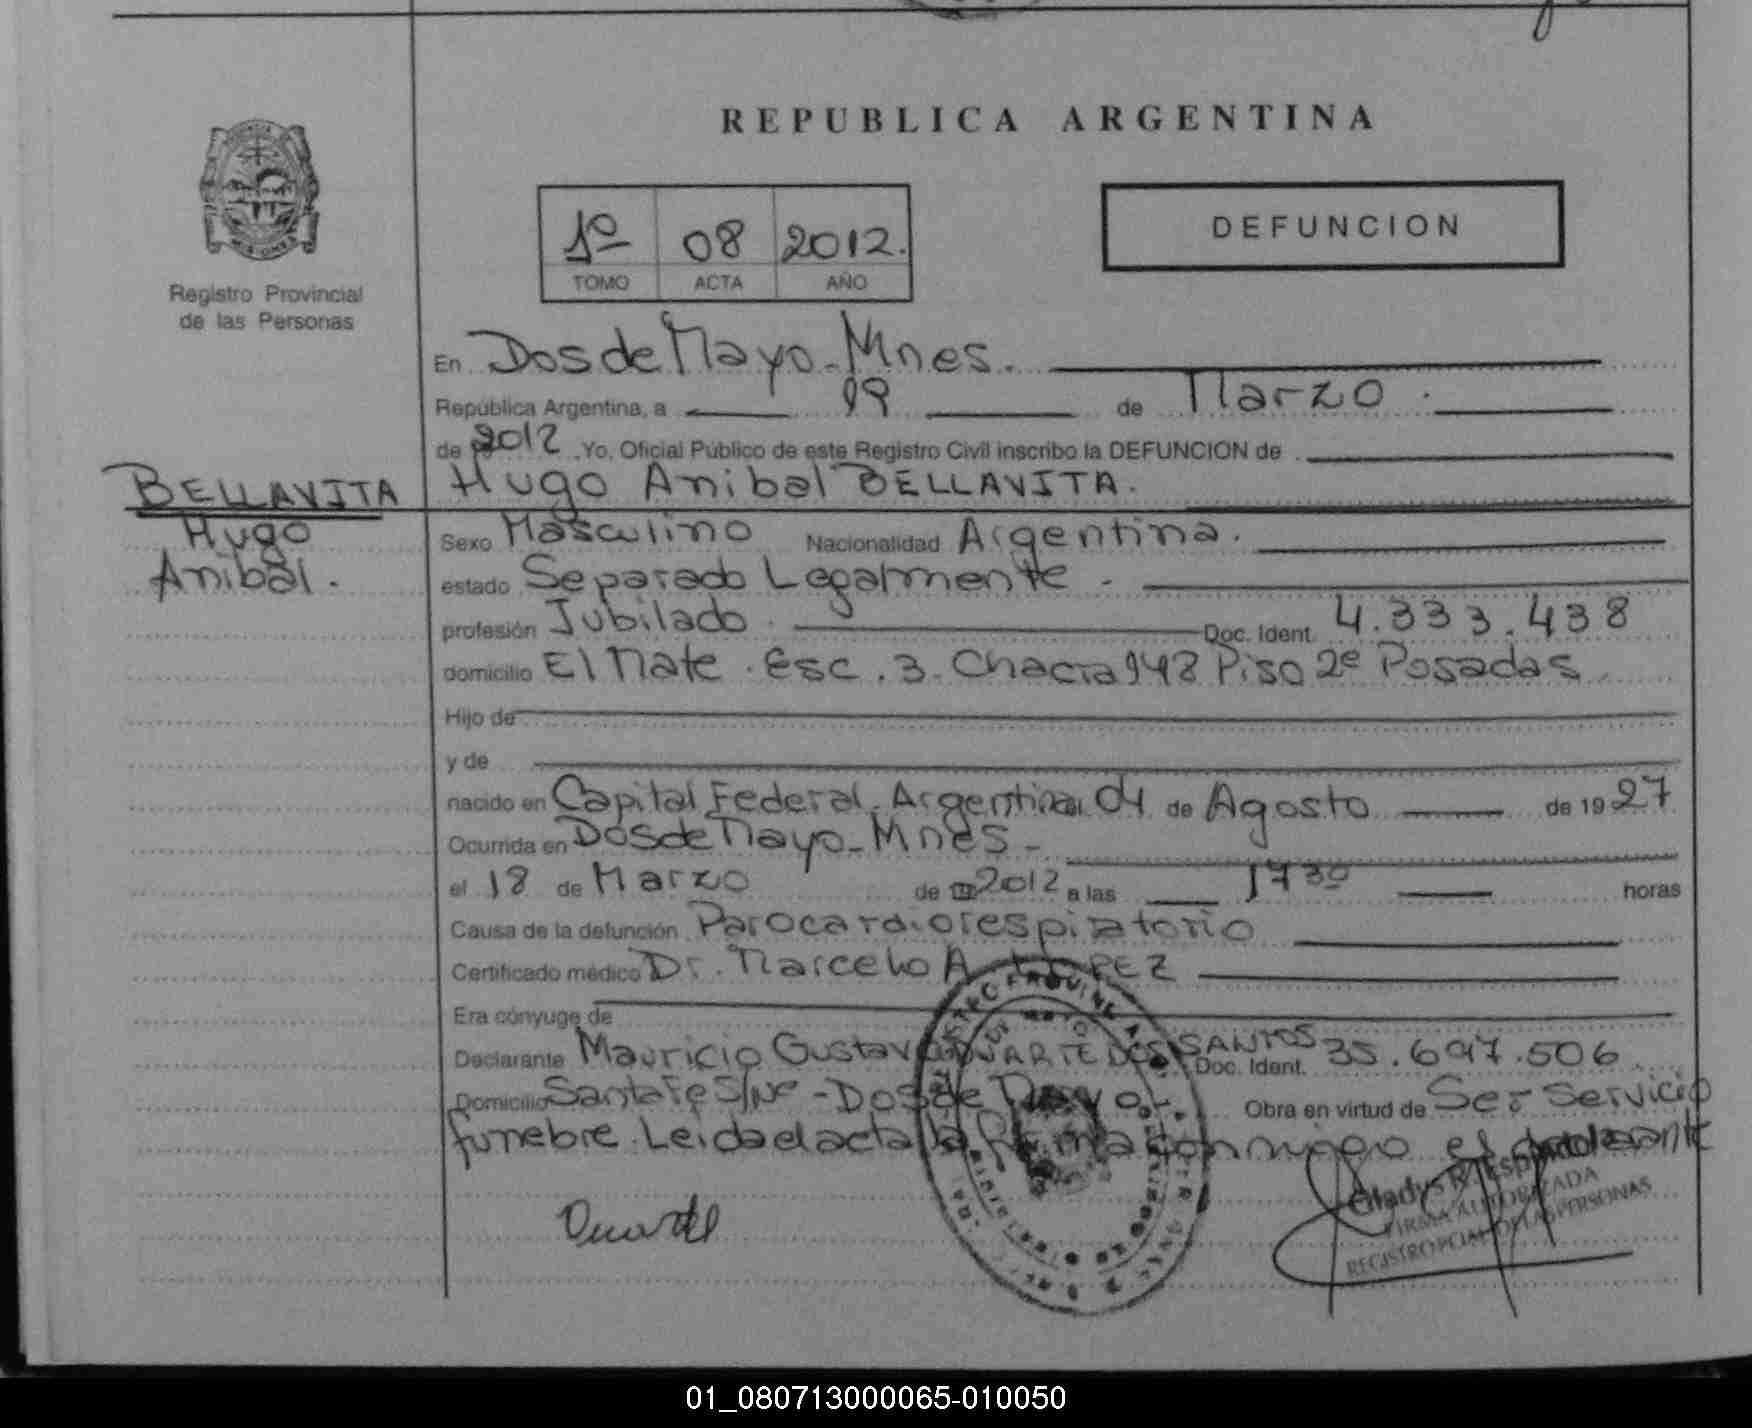 REPUBLICA ARGENTINA
1º 08 2012.
TOMO ACTA AÑO
DEFUNCION
Registro Provincial
de las Personas
En Dos de Mayo - Mnes.
República Argentina, a 19 de Marzo.
de 2012 .Yo, Oficial Público de este Registro Civil inscribo la DEFUNCION de
Hugo Anibal BELLAVITA.
BELLAVITA
Hugo
Anibal.
Sexo Masculino Nacionalidad Argentina.
estado Separado Legalmente -
profesión Jubilado. Doc. Ident. 4.333.438
domicilio El Mate. Esc. 3. Chacra 148 Piso 2º Posadas
Hijo de
y de
nacido en Capital Federal. Argentina 04 de Agosto de 1927
Ocurrida en Dos de Mayo - Mnes -
el 18 de Marzo de 2012 a las 17 30 horas
Causa de la defunción Parocardiorespiratorio
Certificado médico Dr. Marcelo A. LOPEZ
Era cónyuge de
Declarante Mauricio Gustavo DUARTE DOS SANTOS Doc. Ident. 35.697.506
Domicilio Santa Fe S/Nº - Dos de Mayo. Obra en virtud de Ser Servicio
funebre. Leida el acta la firma conmigo el declarante
Duarte
Gladys R.
FIRMA AUTORIZADA
REGISTRO PCIAL DE LAS PERSONAS
01_080713000065-010050